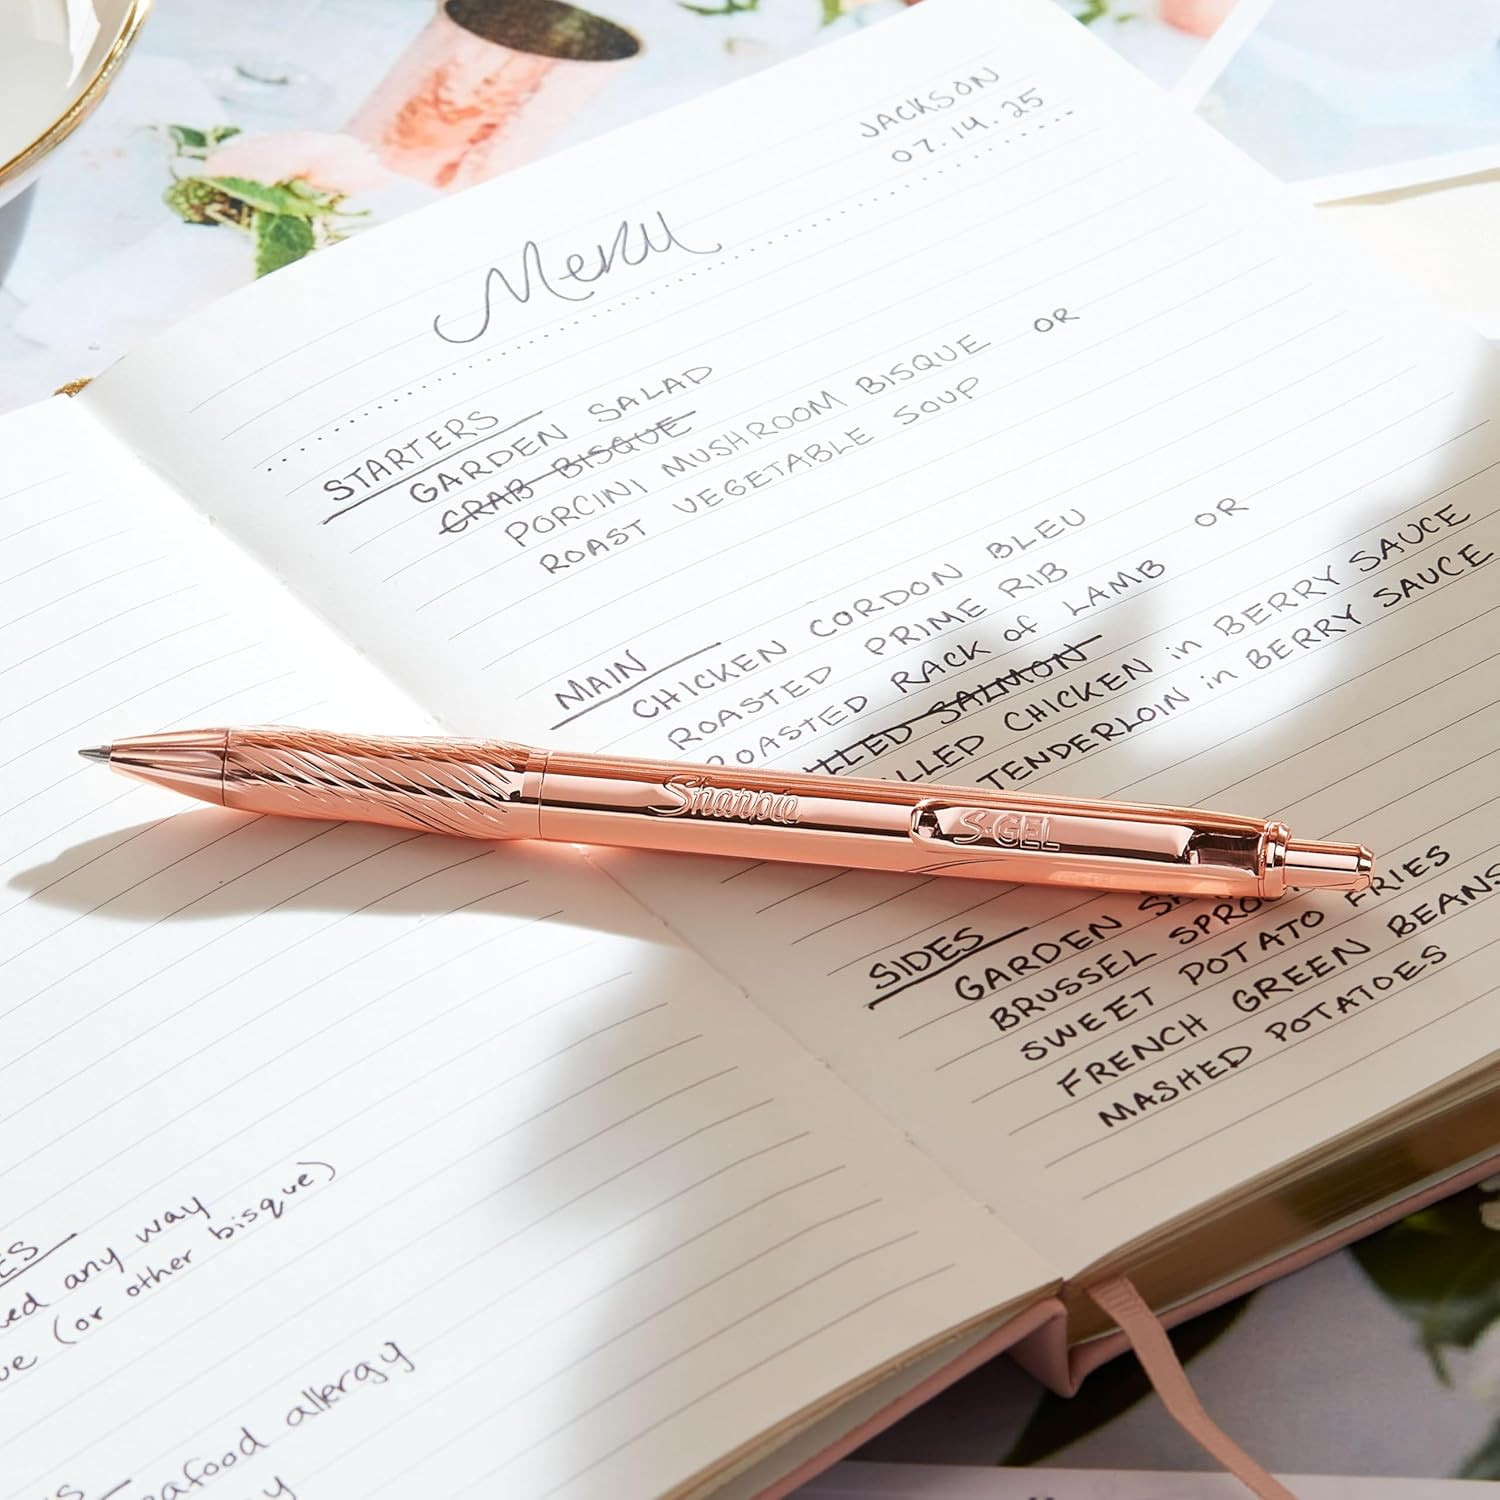 JACKSON
07.14.25
Menu
STARTERS
GARDEN SALAD
CRAB BISQUE
PORCINI MUSHROOM BISQUE OR
ROAST VEGETABLE SOUP
MAIN
CHICKEN CORDON BLEU
ROASTED PRIME RIB
ROASTED RACK of LAMB OR
SALMON
CHICKEN in BERRY SAUCE
TENDERLOIN in BERRY SAUCE
Sharpie S·GEL
SIDES
GARDEN
BRUSSEL
SWEET POTATO FRIES
FRENCH GREEN BEANS
MASHED POTATOES
any way
(or other bisque)
allergy